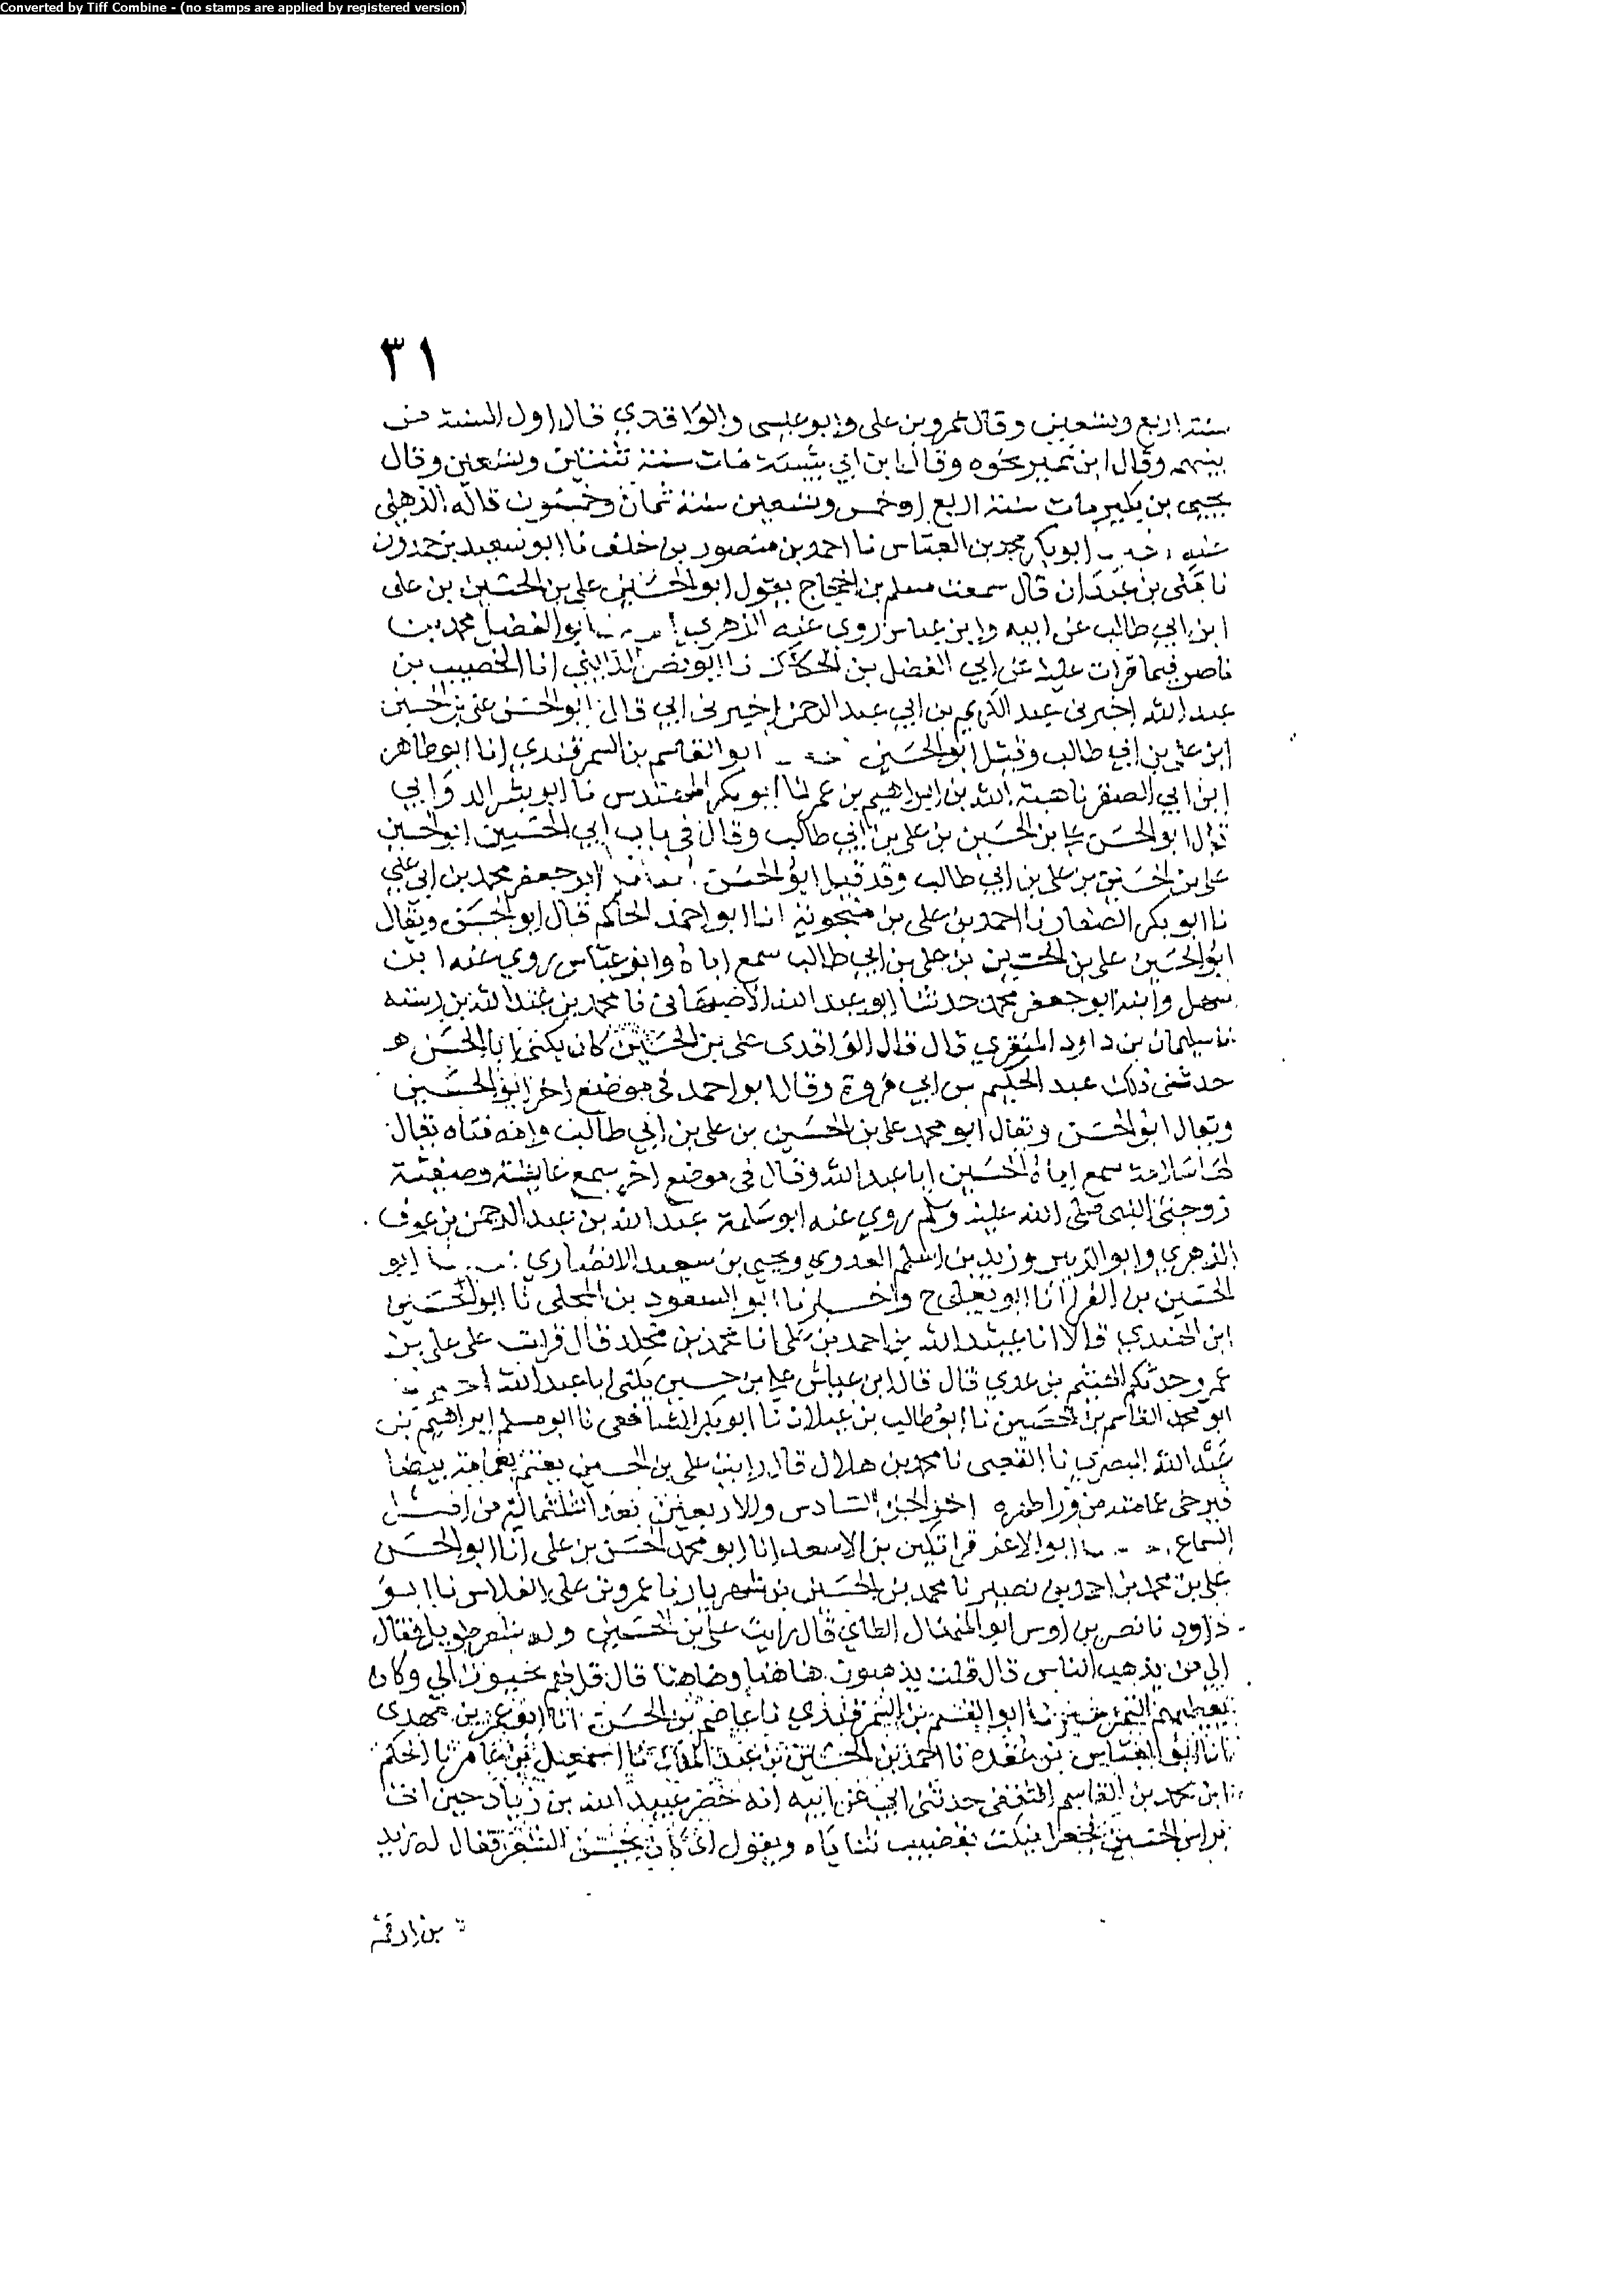 Converted by Tiff Combine - (no stamps are applied by registered version)
٣١
سنة اربع وتسعين وقال عمرو بن على وابو عيسى والواقدي قال اول السنة من
بينهم وقال ابن نمير نحوه وقال ابن ابي شيبة مات سنة ثنتين وتسعين وقال
يحيى بن بكير مات سنة اربع او خمس وتسعين سنه ثمان وخمسون قاله الذهلى
ابو بكر محمد بن العباس نا احمد بن منصور بن خلف نا ابو سعيد بن حمدون
نا مكى بن عبدان قال سمعت مسلم بن الحجاج يقول ابو الحسين على بن الحسين بن على
ابن ابي طالب عن ابيه وابن عباس روى عنه الزهري ابو الفضل محمد بن
ناصر فيما قرات عليه عن ابي الفضل بن الحكاك نا ابو نصر الوايلي انا الخصيب بن
عبد الله اخبرنى عبد الكريم بن ابي عبد الرحمن اخبرنى ابي قال ابو الحسن على بن الحسين
ابن على بن ابي طالب وقيل ابو الحسين ابو القاسم بن السمرقندي انا ابو طاهر
ابن ابي الصقر نا هبة الله بن ابراهيم بن عمر نا ابو بكر المهندس نا ابو بشر الدولابي
قال ابو الحسن على بن الحسين بن على بن ابي طالب وقال في باب ابي الحسين ابو الحسين
على بن الحسين بن على بن ابي طالب وقد قيل ابو الحسن ابو جعفر محمد بن ابي على
نا ابو بكر الصفار نا احمد بن على بن منجويه انا ابو احمد الحاكم قال ابو الحسن ويقال
ابو الحسين على بن الحسين بن على بن ابي طالب سمع اباه وابن عباس روى عنه ابن
سهل وابنه ابو جعفر محمد حدثنا ابو عبد الله الاصبهانى نا محمد بن عبد الله بن رسته
نا سليمان بن داود المنقري قال قال الواقدى على بن الحسين كان يكنى ابا الحسن
حدثنى ذلك عبد الحكيم بن ابي فروة وقال ابو احمد فى موضع اخر ابو الحسين
ويقال ابو الحسن ويقال ابو محمد على بن الحسين بن على بن ابي طالب وامه فتاه يقال
لها سلامة سمع اباه الحسين ابا عبد الله وقال في موضع اخر سمع عايشة وصفية
زوجتى النبى صلى الله عليه وسلم روى عنه ابو سلمة عبد الله بن عبد الرحمن بن عوف
الزهري وابو الزبير وزيد بن اسلم العدوي ويحيى بن سعيد الانصاري ابو
الحسين بن الفرا انا ابو يعلى ح واخبرنا ابو السعود بن المجلى نا ابو الحسين
ابن المهتدي قالا انا عبيد الله بن احمد بن على انا محمد بن مخلد قال قرات على على بن
عمرو حدثكم الهيثم بن عدي قال قال ابن عياش على بن حسين يكنى ابا عبد الله
ابو محمد القاسم بن الحصين نا ابو طالب بن غيلان نا ابو بكر الشافعى نا ابو مسلم ابراهيم بن
عبد الله البصرى نا القعنبى نا محمد بن هلال قال رايت على بن الحسين يعتم بعمامة بيضا
فيرخى عمامته من ورا ظهره اخر الجزء السادس والاربعين بعد الثلثمائة من
السماع ابو الاعز قراتكين بن الاسعد انا ابو محمد الحسن بن على انا ابو الحسن
على بن محمد بن احمد بن نصير نا محمد بن الحسين بن شهريار نا عمرو بن على الفلاس نا ابو
داود نا نصر بن اوس ابو المنهال الطاي قال رايت على بن الحسين وله شعر طويل فقال
الى من يذهب الناس قال قلت يذهبون هاهنا وهاهنا قال قل لهم يجيون الي وكان
ابو القسم بن السمرقندي نا عاصم بن الحسن انا ابو عمر بن مهدى
انا ابو العباس بن عقده نا احمد بن الحسين بن عبد الملك نا اسمعيل بن عامر نا الحكم
ابن محمد بن القاسم الثقفى حدثنى ابي عن ابيه انه حضر عبيد الله بن زياد حين اتى
براس الحسين فجعل ينكت بقضيب ثناياه ويقول ان كان لحسن الثغر فقال له زيد
بن ارقم